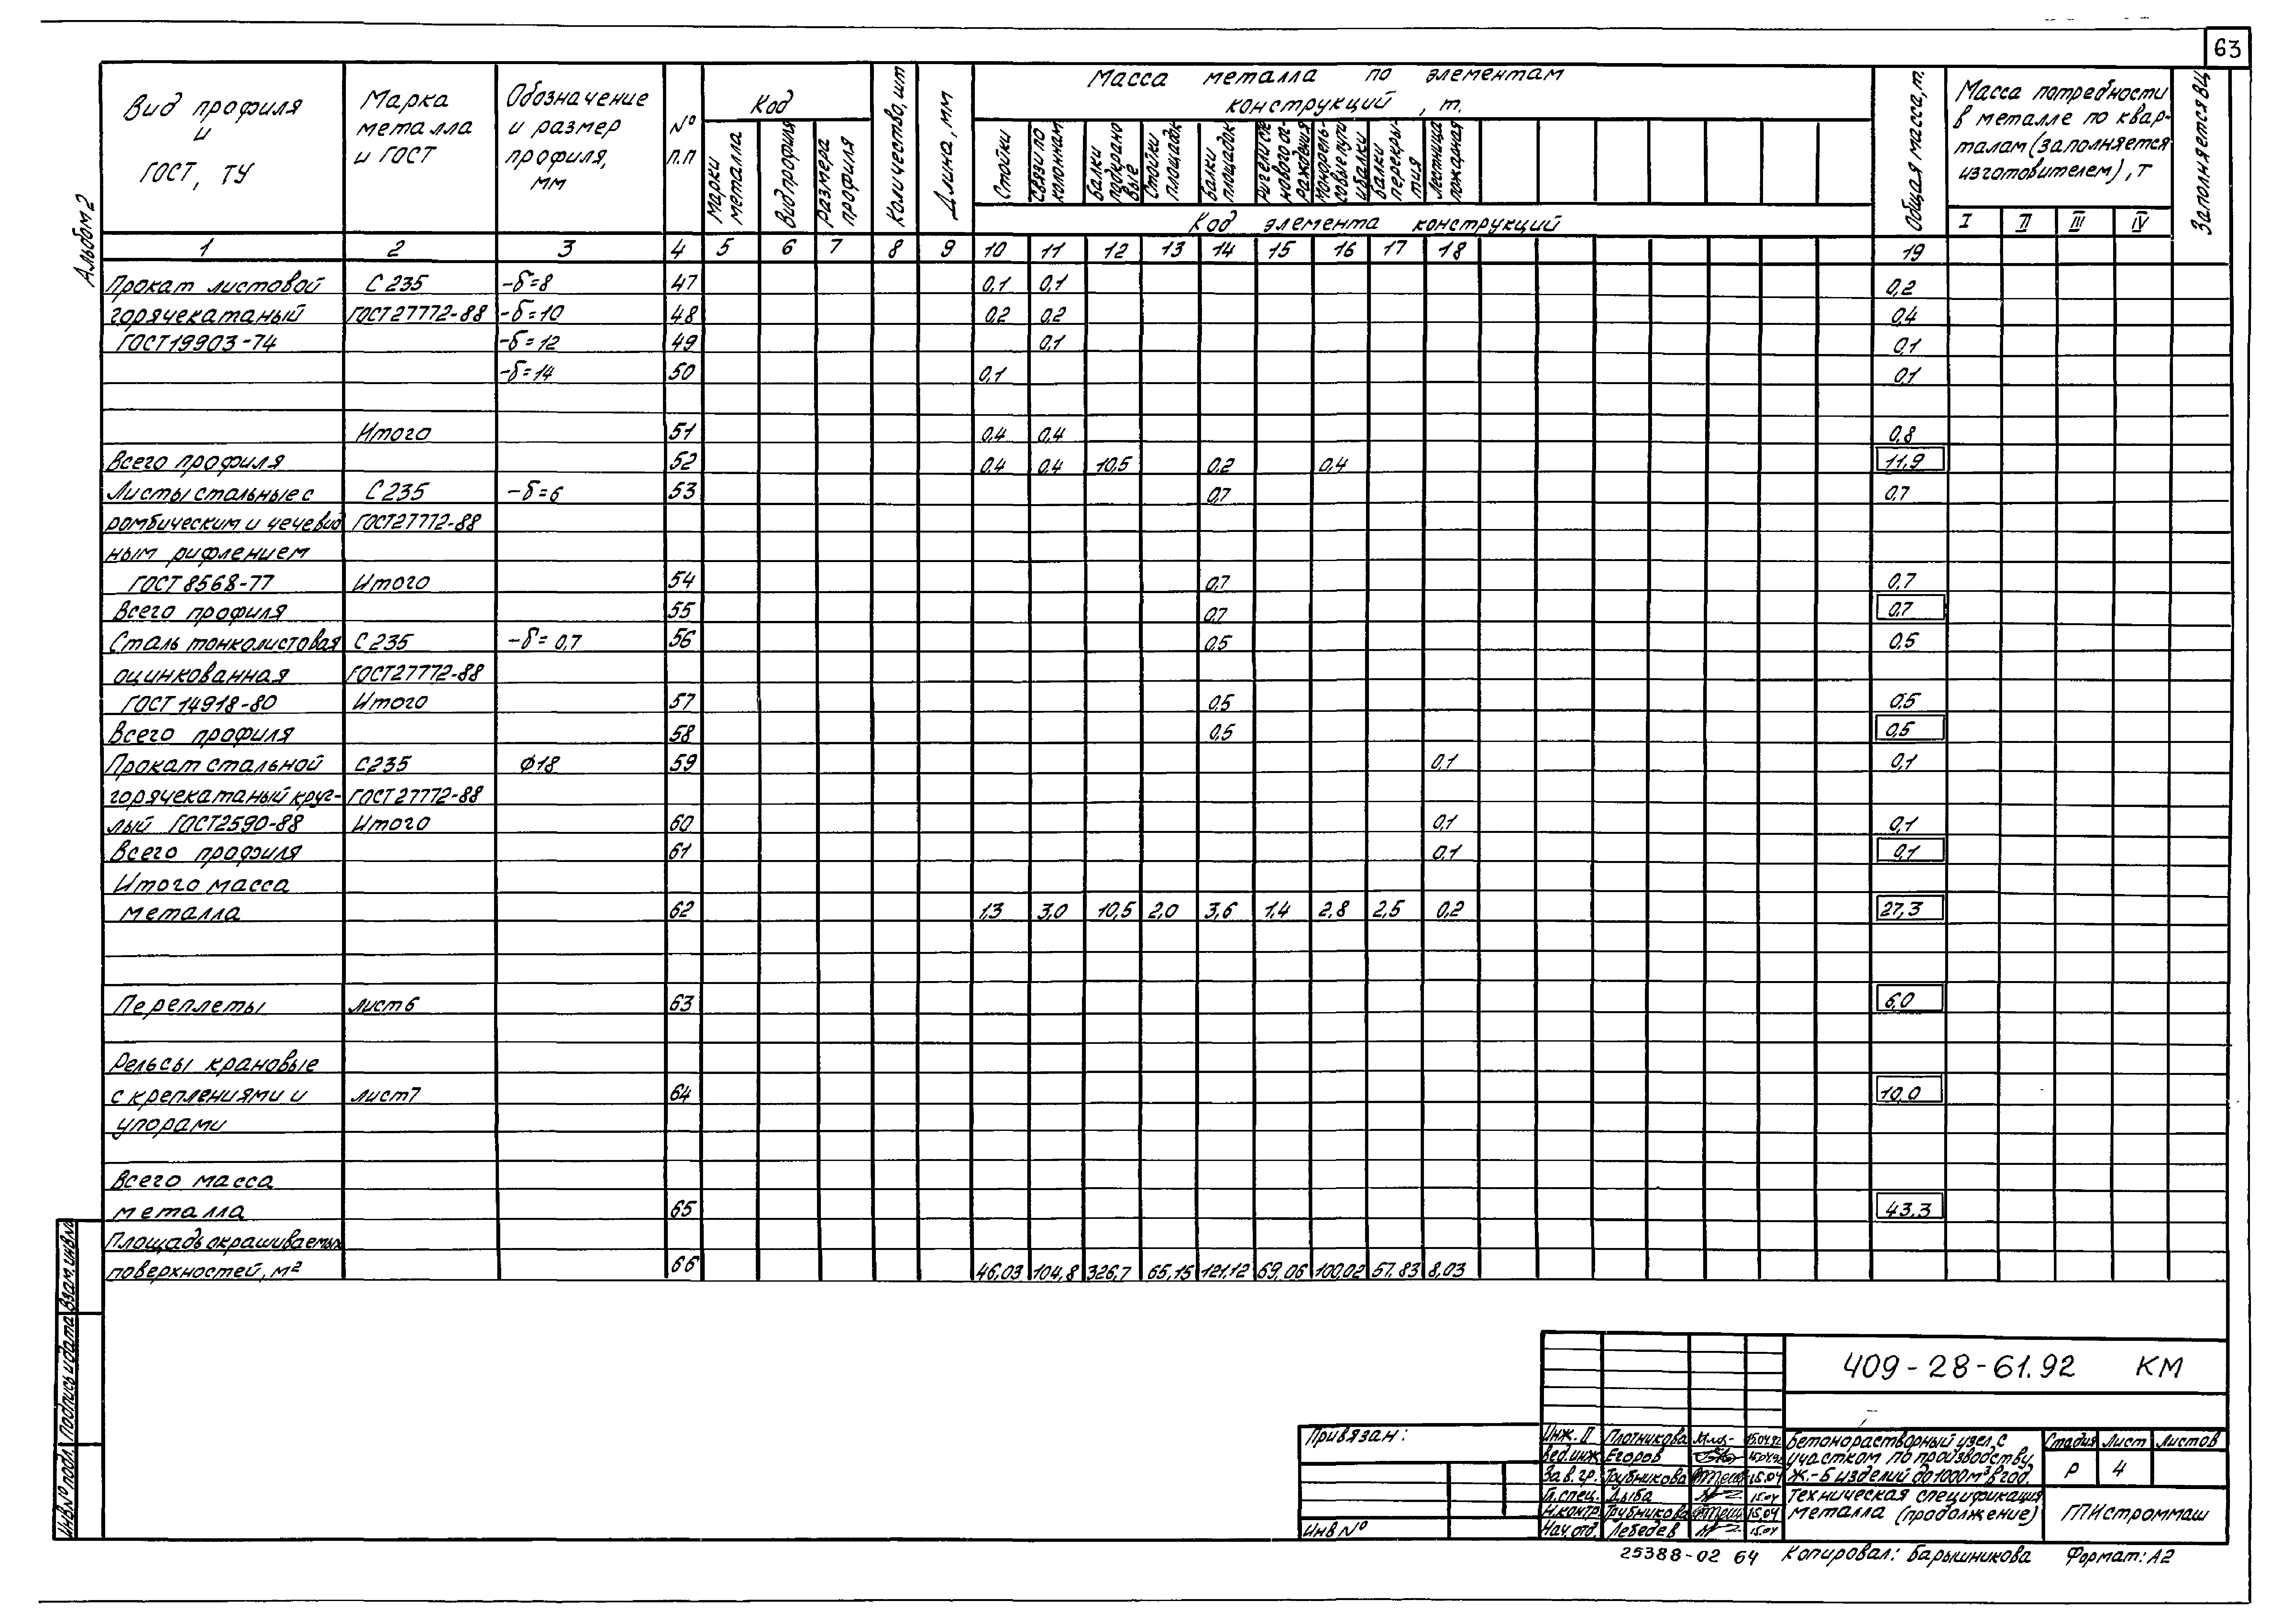 63
Альбом 2
Вид профиля и ГОСТ, ТУ
Марка металла и ГОСТ
Обозначение и размер профиля, мм
№ п.п
Код
Марки металла
Вид профиля
Размера профиля
Количество, шт
Длина, мм
Масса металла по элементам конструкций, т.
Стойки
Связи по колоннам
Балки подкрановые
Стойки площадок
Балки площадок
Ригели стенового ограждения
Монорельсовые пути и балки
Балки перекрытия
Лестница пожарная
Код элемента конструкций
Общая масса, т.
Масса потребности в металле по кварталам (заполняется изготовителем), т
I II III IV
Заполняется ВЦ
1 2 3 4 5 6 7 8 9 10 11 12 13 14 15 16 17 18 19
Прокат листовой С 235 -δ=8 47 0,1 0,1 0,2
горячекатаный ГОСТ 27772-88 -δ=10 48 0,2 0,2 0,4
ГОСТ 19903-74 -δ=12 49 0,1 0,1
-δ=14 50 0,1 0,1
Итого 51 0,4 0,4 0,8
Всего профиля 52 0,4 0,4 10,5 0,2 0,4 11,9
Листы стальные с С 235 -δ=6 53 0,7 0,7
ромбическим и чечевид ГОСТ 27772-88
ным рифлением
ГОСТ 8568-77 Итого 54 0,7 0,7
Всего профиля 55 0,7 0,7
Сталь тонколистовая С 235 -δ=0,7 56 0,5 0,5
оцинкованная ГОСТ 27772-88
ГОСТ 14918-80 Итого 57 0,5 0,5
Всего профиля 58 0,5 0,5
Прокат стальной С235 ф18 59 0,1 0,1
горячекатаный круг- ГОСТ 27772-88
лый ГОСТ 2590-88 Итого 60 0,1 0,1
Всего профиля 61 0,1 0,1
Итого масса
металла 62 1,3 3,0 10,5 2,0 3,6 1,4 2,8 2,5 0,2 27,3
Переплеты лист 6 63 6,0
Рельсы крановые
с креплениями и лист 7 64 10,0
упорами
Всего масса
металла 65 43,3
Площадь окрашиваемых
поверхностей, м² 66 46,03 104,8 326,7 65,15 121,12 69,06 100,02 57,83 8,03
Инв № подл. Подпись и дата Взам. инв. №
Привязан:
Инв №
409-28-61.92 КМ
Инж. II Плотникова 15.04.92
Вед. инж Егоров 15.04.92
Зав. гр. Трубникова 15.04
Гл. спец. Дыба 15.04
Н. контр. Трубникова 15.04
Нач. отд. Лебедев 15.04
Бетонорастворный узел с
участком по производству
ж.-б изделий до 1000 м³ в год.
Стадия Лист Листов
Р 4
Техническая спецификация
металла (продолжение)
ГПИстроммаш
25388-02 64 Копировал: Барышникова Формат: А2